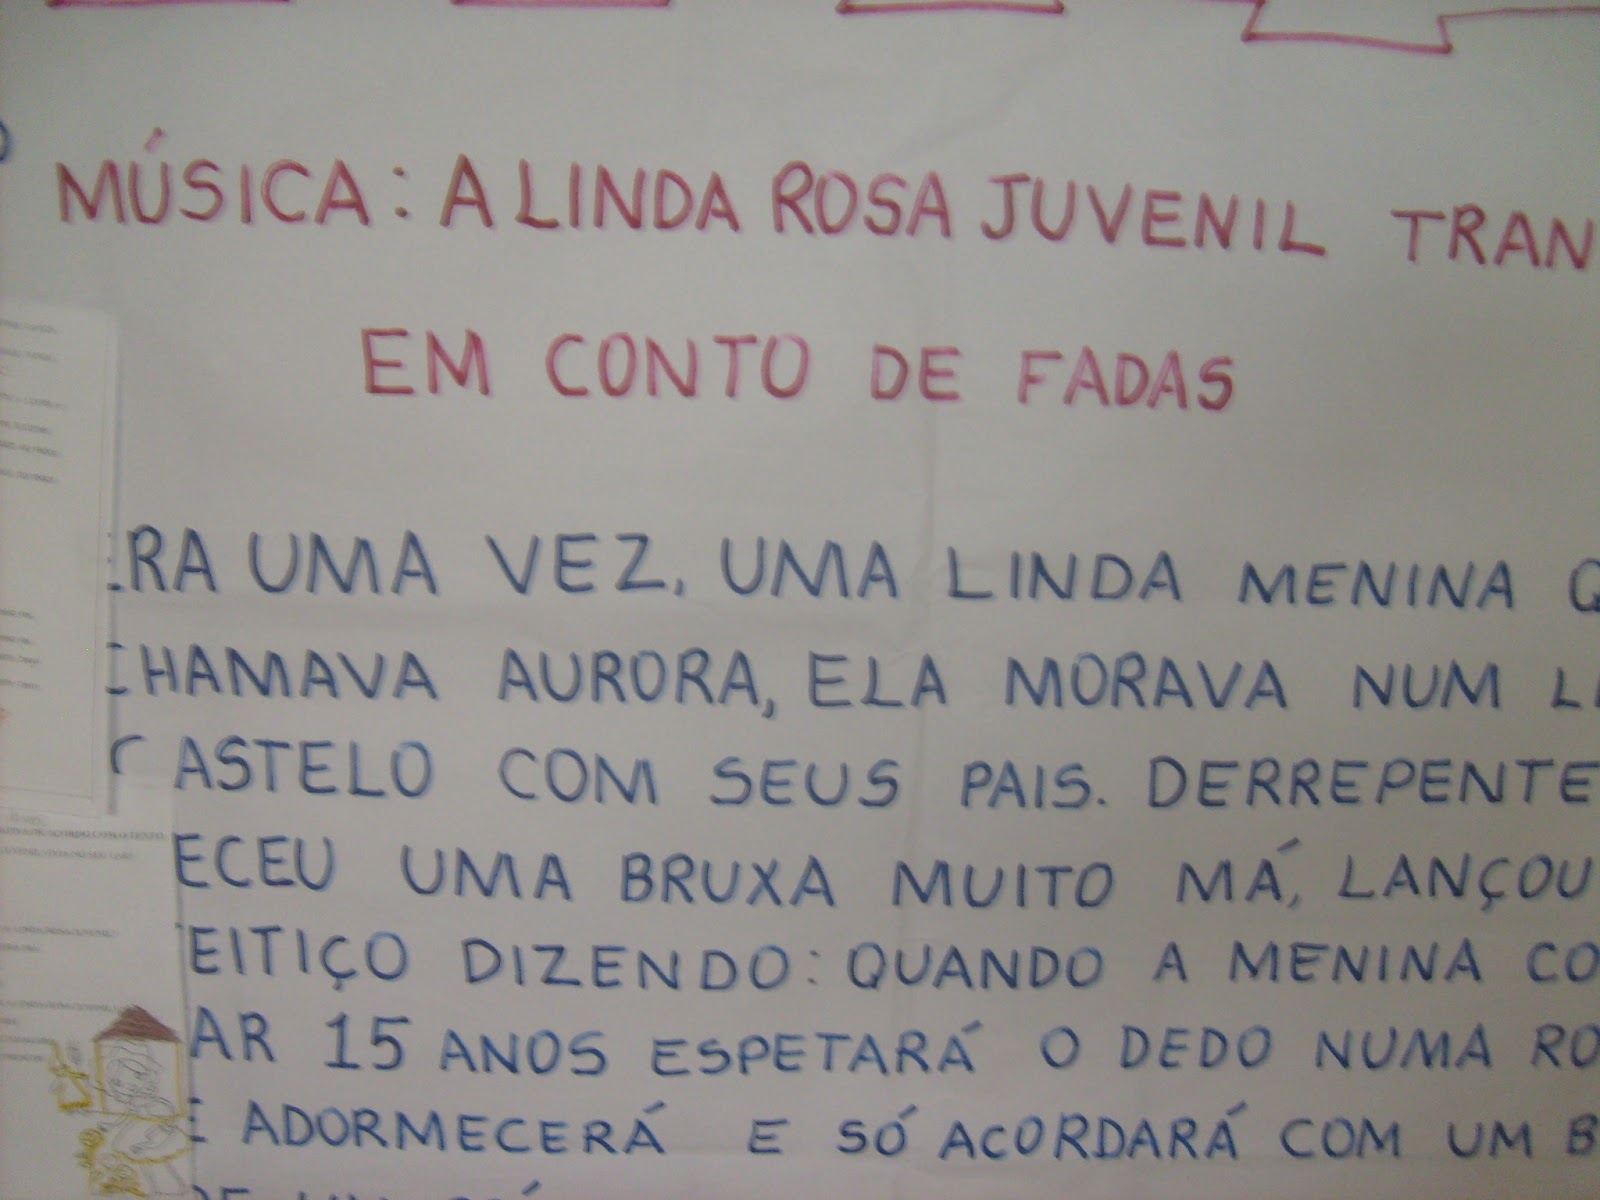 MÚSICA: A LINDA ROSA JUVENIL TRAN
EM CONTO DE FADAS
ERA UMA VEZ, UMA LINDA MENINA Q
CHAMAVA AURORA, ELA MORAVA NUM LI
CASTELO COM SEUS PAIS. DERREPENTE
ECEU UMA BRUXA MUITO MÁ, LANÇOU
FEITIÇO DIZENDO: QUANDO A MENINA CO
AR 15 ANOS ESPETARÁ O DEDO NUMA RO
E ADORMECERÁ E SÓ ACORDARÁ COM UM B